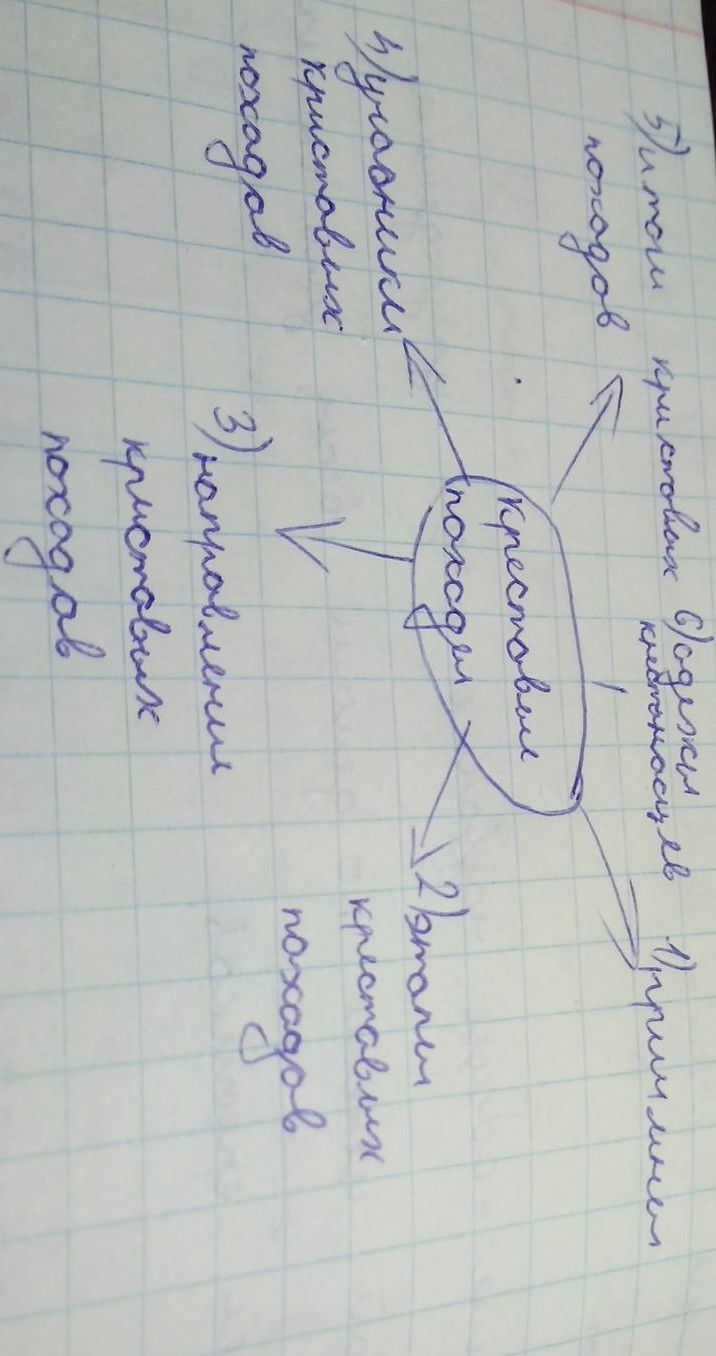 Крестовые
походы
1) причины
2) этапы
крестовых
походов
3) направления
кристовых
походов
4) участники
кристовых
походов
5) итоги кристовых
походов
6) одежы
крестаносцев